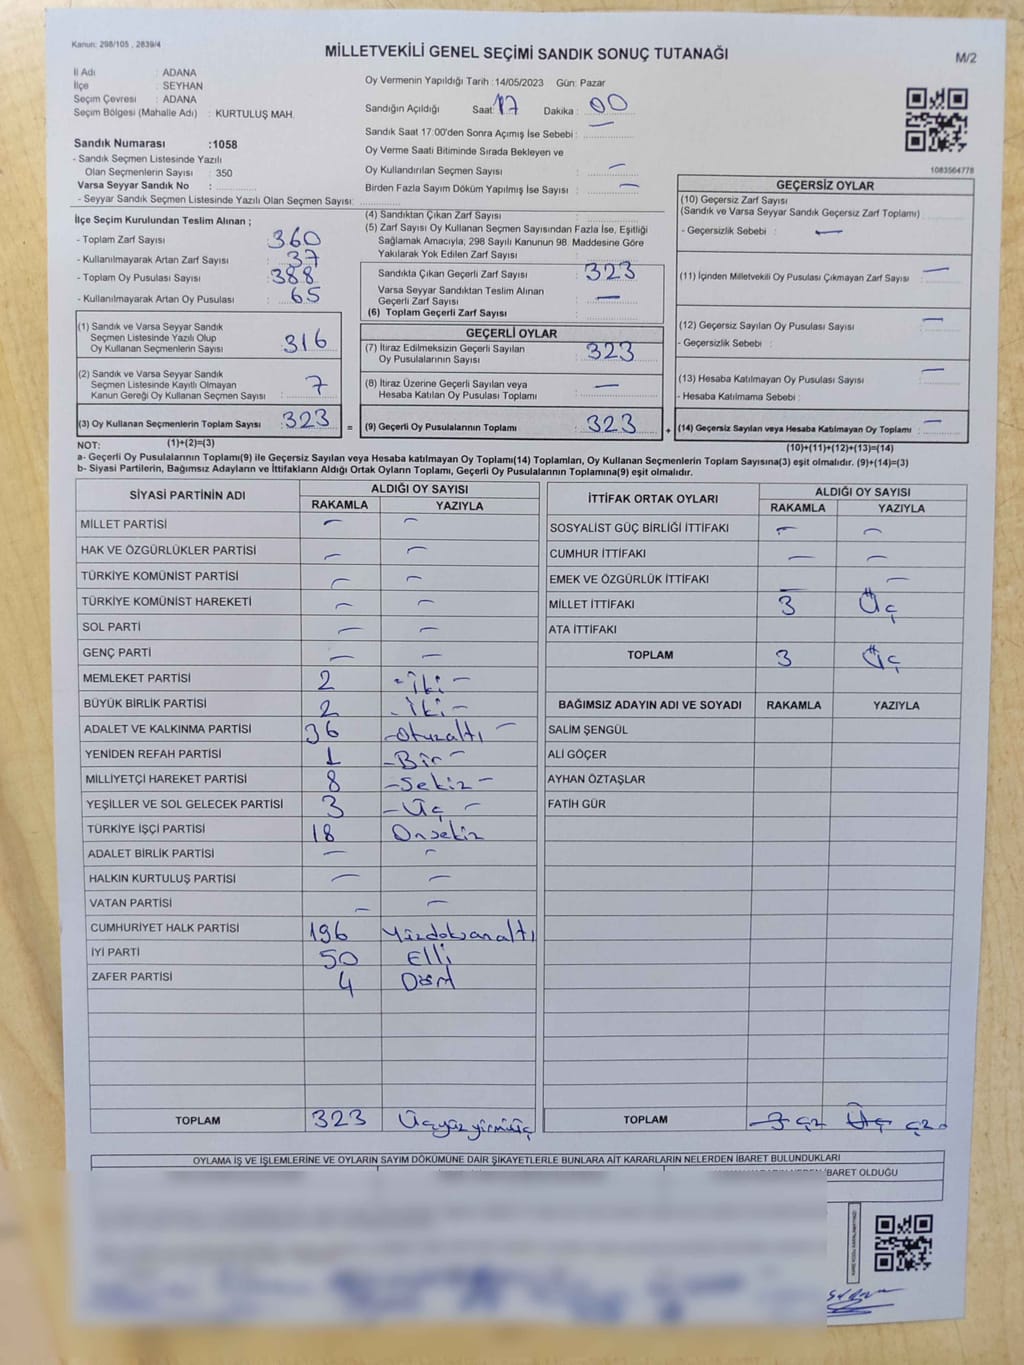 Kanun: 298/105 , 2839/4
MİLLETVEKİLİ GENEL SEÇİMİ SANDIK SONUÇ TUTANAĞI
M/2
İl Adı : ADANA
İlçe : SEYHAN
Seçim Çevresi : ADANA
Seçim Bölgesi (Mahalle Adı) : KURTULUŞ MAH.
Sandık Numarası :1058
- Sandık Seçmen Listesinde Yazılı
Olan Seçmenlerin Sayısı : 350
Varsa Seyyar Sandık No :
- Seyyar Sandık Seçmen Listesinde Yazılı Olan Seçmen Sayısı:
Oy Vermenin Yapıldığı Tarih :14/05/2023 Gün: Pazar
Sandığın Açıldığı Saat: 17 Dakika : 00
Sandık Saat 17:00'den Sonra Açımış İse Sebebi : —
Oy Verme Saati Bitiminde Sırada Bekleyen ve
Oy Kullandırılan Seçmen Sayısı : —
Birden Fazla Sayım Döküm Yapılmış İse Sayısı : —
1083564778
İlçe Seçim Kurulundan Teslim Alınan ;
- Toplam Zarf Sayısı : 360
- Kullanılmayarak Artan Zarf Sayısı : 37
- Toplam Oy Pusulası Sayısı : 388
- Kullanılmayarak Artan Oy Pusulası : 65
(1) Sandık ve Varsa Seyyar Sandık
Seçmen Listesinde Yazılı Olup
Oy Kullanan Seçmenlerin Sayısı : 316
(2) Sandık ve Varsa Seyyar Sandık
Seçmen Listesinde Kayıtlı Olmayan
Kanun Gereği Oy Kullanan Seçmen Sayısı : 7
(3) Oy Kullanan Seçmenlerin Toplam Sayısı : 323 =
(1)+(2)=(3)
(4) Sandıktan Çıkan Zarf Sayısı :
(5) Zarf Sayısı Oy Kullanan Seçmen Sayısından Fazla İse, Eşitliği
Sağlamak Amacıyla, 298 Sayılı Kanunun 98. Maddesine Göre
Yakılarak Yok Edilen Zarf Sayısı :
Sandıkta Çıkan Geçerli Zarf Sayısı : 323
Varsa Seyyar Sandıktan Teslim Alınan
Geçerli Zarf Sayısı : —
(6) Toplam Geçerli Zarf Sayısı :
GEÇERLİ OYLAR
(7) İtiraz Edilmeksizin Geçerli Sayılan
Oy Pusulalarının Sayısı : 323
(8) İtiraz Üzerine Geçerli Sayılan veya
Hesaba Katılan Oy Pusulası Toplamı : —
(9) Geçerli Oy Pusulalarının Toplamı : 323 +
GEÇERSİZ OYLAR
(10) Geçersiz Zarf Sayısı
(Sandık ve Varsa Seyyar Sandık Geçersiz Zarf Toplamı)
- Geçersizlik Sebebi : —
(11) İçinden Milletvekili Oy Pusulası Çıkmayan Zarf Sayısı : —
(12) Geçersiz Sayılan Oy Pusulası Sayısı : —
- Geçersizlik Sebebi :
(13) Hesaba Katılmayan Oy Pusulası Sayısı : —
- Hesaba Katılmama Sebebi :
(14) Geçersiz Sayılan veya Hesaba Katılmayan Oy Toplamı : —
(10)+(11)+(12)+(13)=(14)
NOT:
a- Geçerli Oy Pusulalarının Toplamı(9) ile Geçersiz Sayılan veya Hesaba Katılmayan Oy Toplamı(14) Toplamları, Oy Kullanan Seçmenlerin Toplam Sayısına(3) eşit olmalıdır. (9)+(14)=(3)
b- Siyasi Partilerin, Bağımsız Adayların ve İttifakların Aldığı Ortak Oyların Toplamı, Geçerli Oy Pusulalarının Toplamına(9) eşit olmalıdır.
SİYASİ PARTİNİN ADI ALDIĞI OY SAYISI
RAKAMLA YAZIYLA
MİLLET PARTİSİ — —
HAK VE ÖZGÜRLÜKLER PARTİSİ — —
TÜRKİYE KOMÜNİST PARTİSİ — —
TÜRKİYE KOMÜNİST HAREKETİ — —
SOL PARTİ — —
GENÇ PARTİ — —
MEMLEKET PARTİSİ 2 - İki -
BÜYÜK BİRLİK PARTİSİ 2 - İki -
ADALET VE KALKINMA PARTİSİ 36 - Otuzaltı -
YENİDEN REFAH PARTİSİ 1 - Bir -
MİLLİYETÇİ HAREKET PARTİSİ 8 - Sekiz -
YEŞİLLER VE SOL GELECEK PARTİSİ 3 - Üç -
TÜRKİYE İŞÇİ PARTİSİ 18 Onsekiz
ADALET BİRLİK PARTİSİ — —
HALKIN KURTULUŞ PARTİSİ — —
VATAN PARTİSİ — —
CUMHURİYET HALK PARTİSİ 196 Yüzdoksanaltı
İYİ PARTİ 50 Elli
ZAFER PARTİSİ 4 Dört
TOPLAM 323 Üçyüzyirmiüç
İTTİFAK ORTAK OYLARI ALDIĞI OY SAYISI
RAKAMLA YAZIYLA
SOSYALİST GÜÇ BİRLİĞİ İTTİFAKI — —
CUMHUR İTTİFAKI — —
EMEK VE ÖZGÜRLÜK İTTİFAKI — —
MİLLET İTTİFAKI 3 Üç
ATA İTTİFAKI
TOPLAM 3 Üç
BAĞIMSIZ ADAYIN ADI VE SOYADI RAKAMLA YAZIYLA
SALİM ŞENGÜL
ALİ GÖÇER
AYHAN ÖZTAŞLAR
FATİH GÜR
TOPLAM 3 Üç
OYLAMA İŞ VE İŞLEMLERİNE VE OYLARIN SAYIM DÖKÜMÜNE DAİR ŞİKAYETLERLE BUNLARA AİT KARARLARIN NELERDEN İBARET BULUNDUKLARI
İBARET OLDUĞU